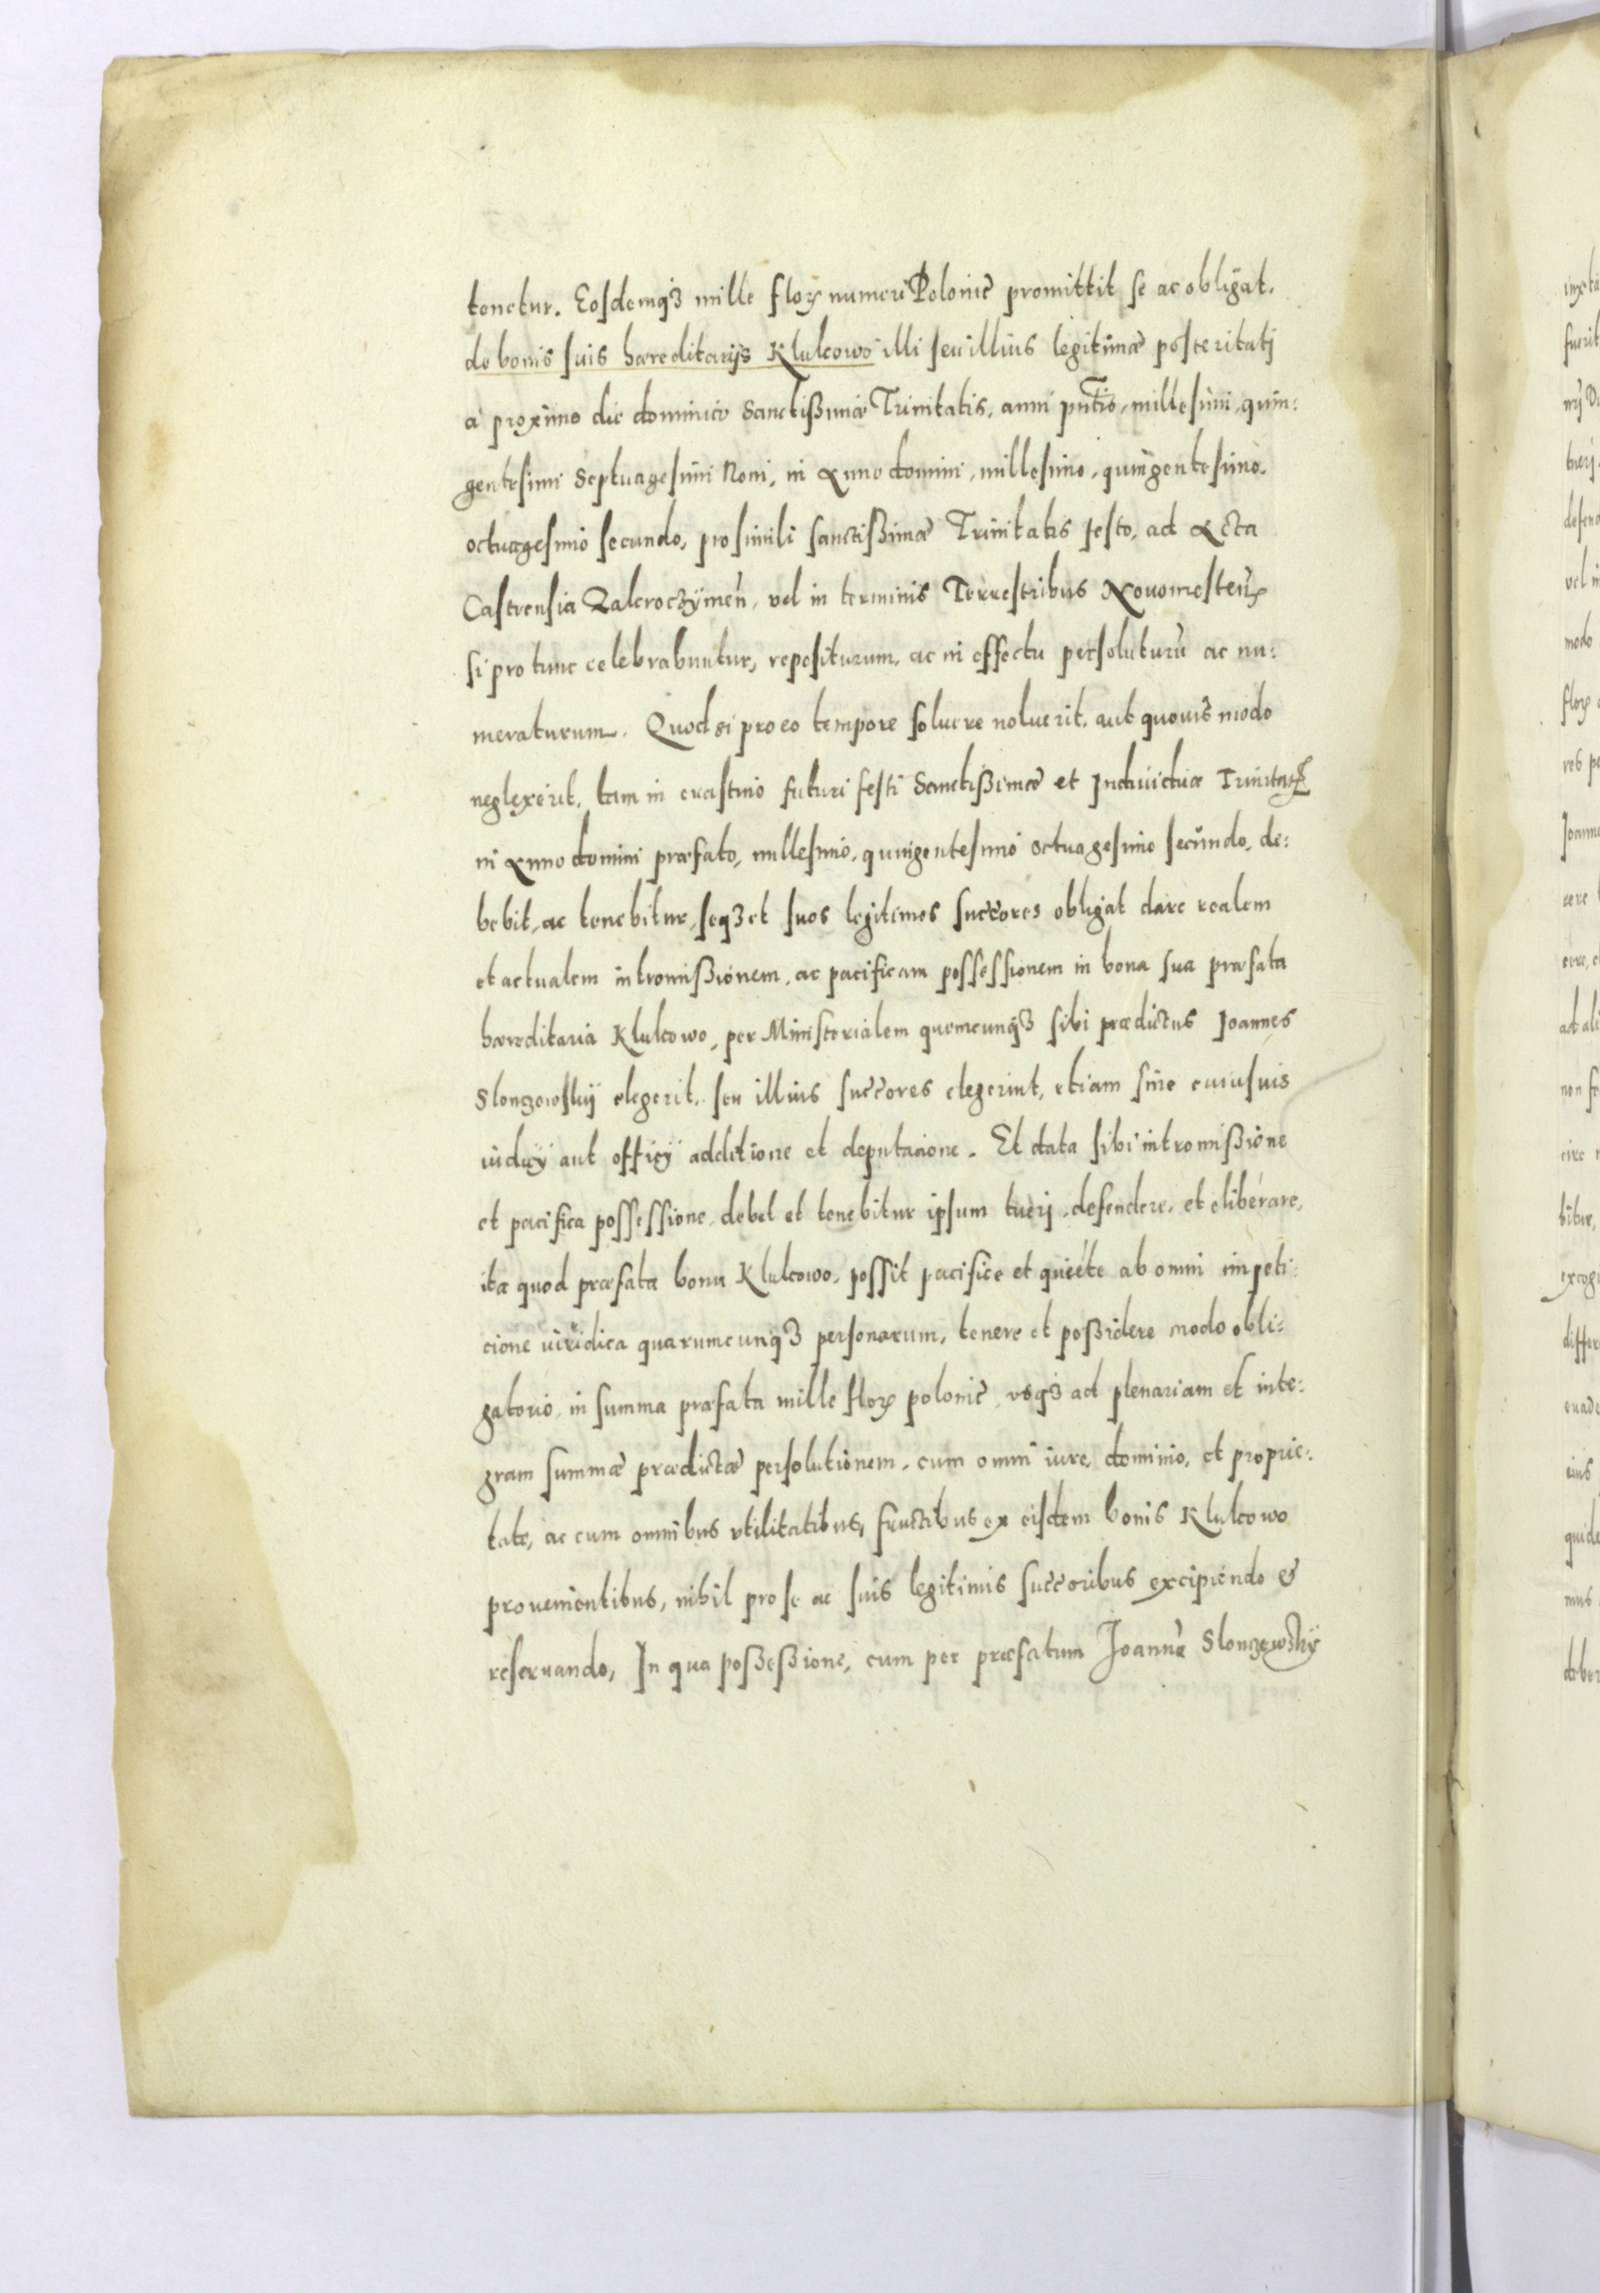 tenetur. Eosdemqȝ mille floꝝ numeri Poloniĉ promittit se ac obligat.
de bonis suis hæreditarijs Klukowo illi seu illius legitimæ posteritatj
a proximo die dominico Sanctißimæ Trinitatis, anni pn̄tis, millesimi, quin:
gentesimi Septuagesimi Noni, in Anno domini, millesimo, quingentesimo.
octuagesimo secundo, pro simili sanctißimæ Trinitatis festo, ad Acta
Castrensia Zakroczÿmeñ, vel in terminis Terrestribus Nouomesteñ
si pro tunc celebrabuntur, repositurum, ac in effectu persoluturũ ac nu:
meraturum. Quod si pro eo tempore soluere noluerit, aut quouis modo
neglexerit, tam in crastino futuri festi Sanctißimæ et Indiuiduæ Trinitaꝭ
in Anno domini præfato, millesimo, quingentesimo octuagesimo secundo, de:
bebit, ac tenebitur, seqȝ et suos legitimos succ̄ores obligat dare realem
et actualem intromißionem, ac pacificam possessionem in bona sua præfata
hæreditaria Klukowo, per Ministerialem quemcunqȝ sibi prædictus Joannes
Slonczewskÿ elegerit, seu illius succ̄ores elegerint, etiam sine cuiusuis
iudicÿ aut officÿ additione et deputacione. Et data sibi intromißione
et pacifica possessione, debet et tenebitur ipsum tuerj, defendere, et eliberare,
ita quod præfata bona Klukowo, possit pacifice et quiete ab omni impeti:
cione iuridica quarumcunqȝ personarum, tenere et poßidere modo obli:
gatorio, in summa præfata mille floꝝ poloniĉ, vsqȝ ad plenariam et inte:
gram summæ prædictæ persolutionem, cum omni iure, dominio, et proprie:
tate, ac cum omnibus vtilitatibus, fructibus ex eisdem bonis Klukowo
prouenientibus, nihil pro se ac suis legitimis succ̄oribus excipiendo &
reseruando, In qua poßeßione, cum per præfatum Joannē Slonczewskÿ